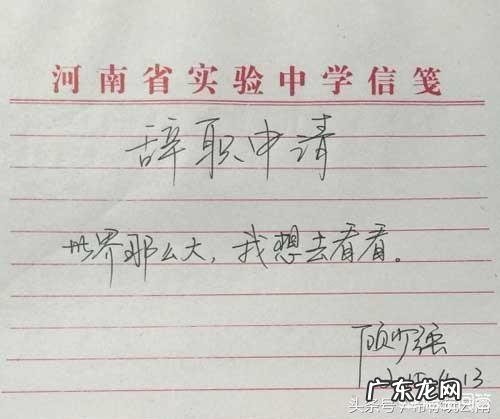 河南省实验中学信笺
辞职申请
世界那么大，我想去看看。
顾少强
广东龙网